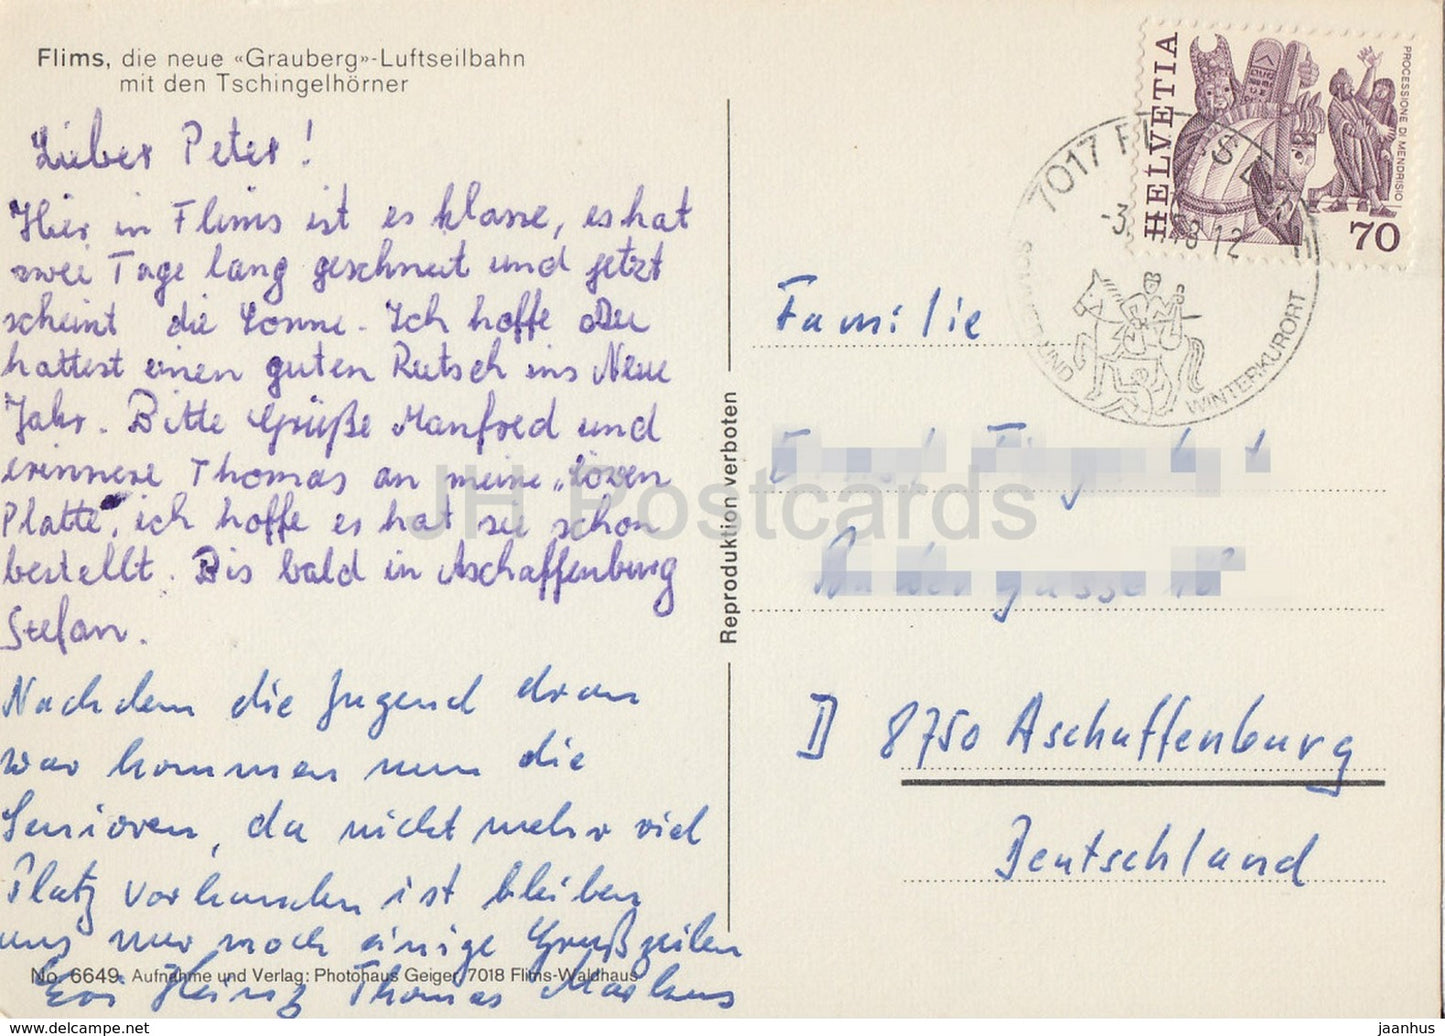 Flims, die neue «Grauberg»-Luftseilbahn
mit den Tschingelhörner
Lieber Peter!
Hier in Flims ist es klasse, es hat
zwei Tage lang geschneit und jetzt
scheint die Sonne. Ich hoffe Du
hattest einen guten Rutsch ins Neue
Jahr. Bitte Grüße Manfred und
erinnere Thomas an meine „Löwen
Platte", ich hoffe er hat sie schon
bestellt. Bis bald in Aschaffenburg
Stefan.
Nachdem die Jugend dran
war kommen nun die
Senioren, da nicht mehr viel
Platz vorhanden ist bleiben
uns nur noch einige Grußzeilen
Evi Heinz Thomas Markus
No. 6649. Aufnahme und Verlag: Photohaus Geiger, 7018 Flims-Waldhaus
Reproduktion verboten
HELVETIA
PROCESSIONE DI MENDRISIO
70
7017 FLIMS
-3. 12
UND WINTERKURORT
Familie
D 8750 Aschaffenburg
Deutschland
JH Postcards
www.jhpostcards.com
jaanhus